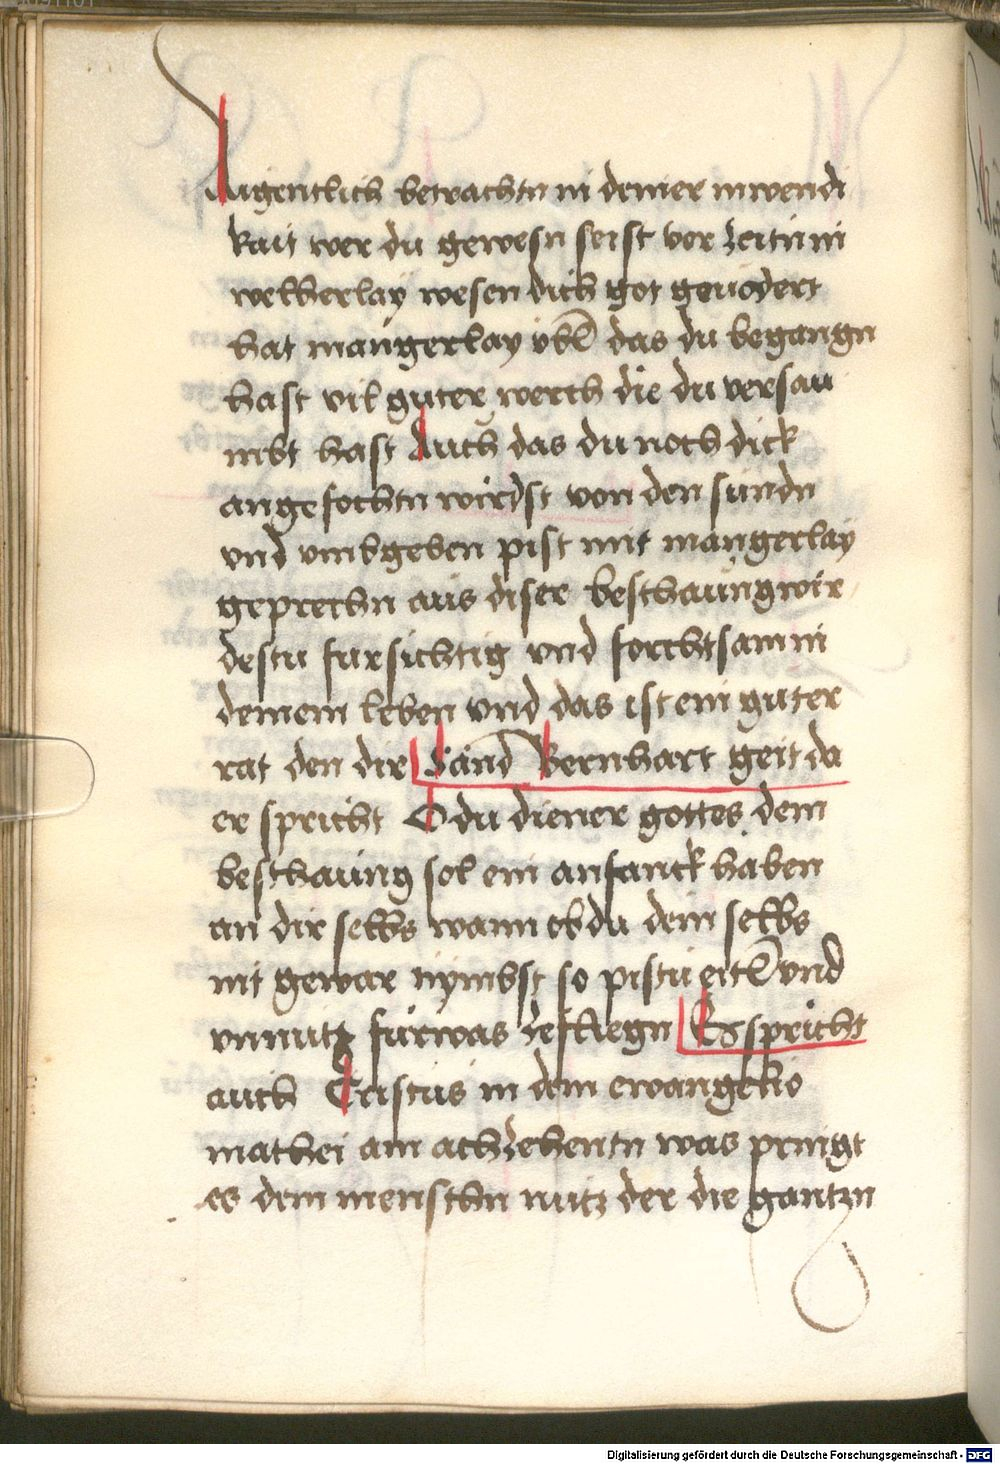 Augentlich betrachtn in deiner inwendi
kait wer du gewesn seist vor zeitn in
welherlay wesen dich got geuodert
hat mangerlay vbel das du begangn
hast vil guter werch die du versau
mbt hast Auch das du noch dick
angefochtn wirdst von den sundn
vnd vmbgeben pist mit mangerlay
geprechn aus diser beschaung wir
destu fursichtig vnd forchtsam in
deinem leben vnd das ist ein guter
rat den dir Sand Bernhart geit da
er spricht O du diener gottes dein
beschaung sol ein anfanck haben
an dir selbs wann ob du dein selbs
nit gewar nymbst so pistu eitel vnd
vnnutz furwas zefliegn Es spricht
auch Cristus in dem ewangelio
mathei am achzehentn was pringt
es dem menschn nutz der die gantzn
Digitalisierung gefördert durch die Deutsche Forschungsgemeinschaft - DFG